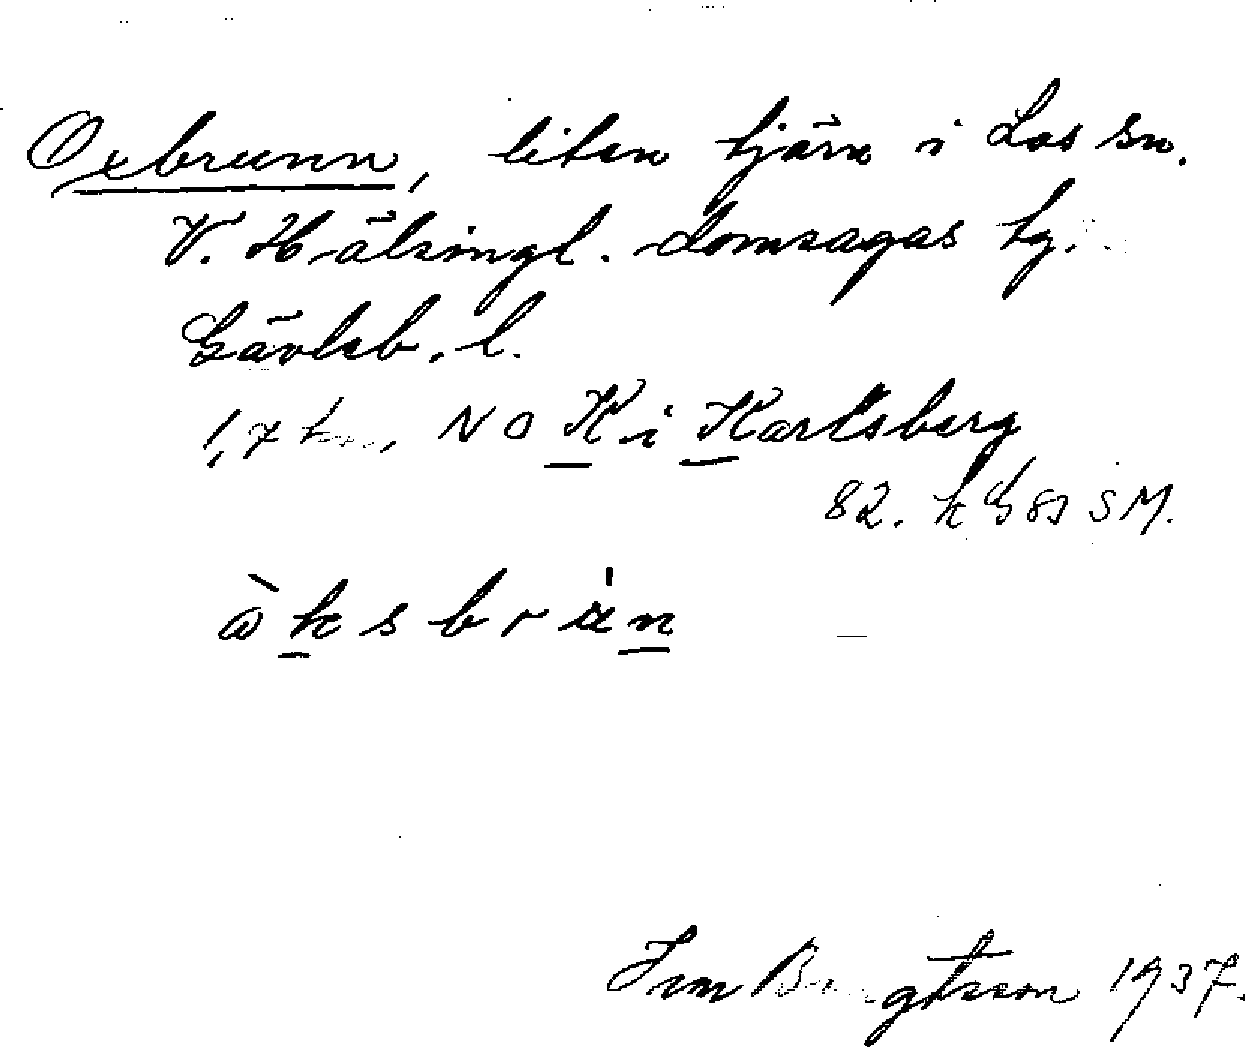 Oxbrunn, liten tjärn i Los sn.
V. Hälsingl. domsagas tg.
Gävleb. l.
1,7 km, NO K i Karlsberg
82. k G 83 SM.
ò k s b r ä n
Bengtsson 1937.